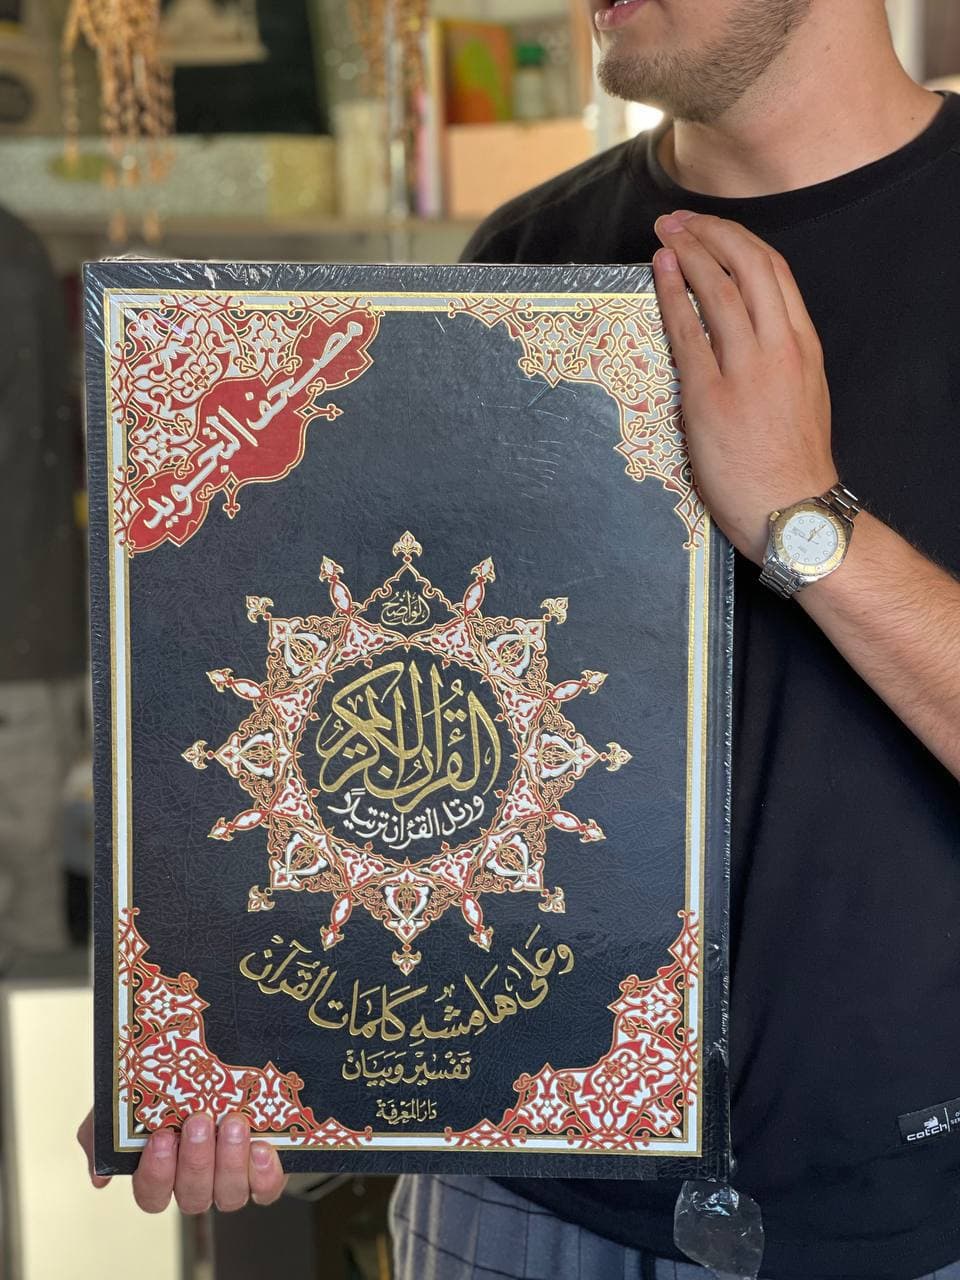 مصحف التجويد
الواضح
القرآن الكريم
ورتل القرءان ترتيلًا
وَعَلى هَامِشْهِ كَلِمَات القُرآن
تَفْسِيْر وَبَيَان
دَارُ المَعْرِفَة
catch